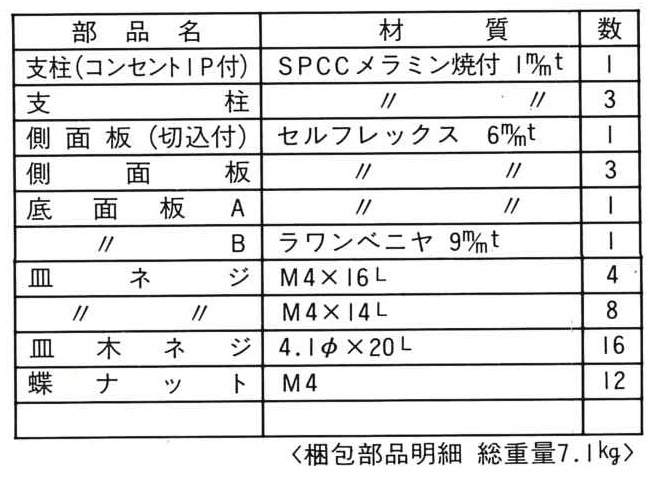 部品名 材質 数
支柱(コンセント1P付) SPCCメラミン焼付 1m/mt 1
支柱 〃 〃 3
側面板(切込付) セルフレックス 6m/mt 1
側面板 〃 〃 3
底面板A 〃 〃 1
〃 B ラワンベニヤ 9m/mt 1
皿ネジ M4×16L 4
〃 〃 M4×14L 8
皿木ネジ 4.1φ×20L 16
蝶ナット M4 12
〈梱包部品明細 総重量7.1kg〉